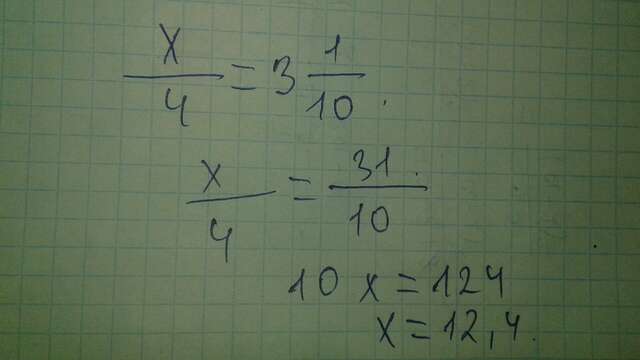 x/4 = 3 1/10.
x/4 = 31/10
10 x = 124
x = 12,4.